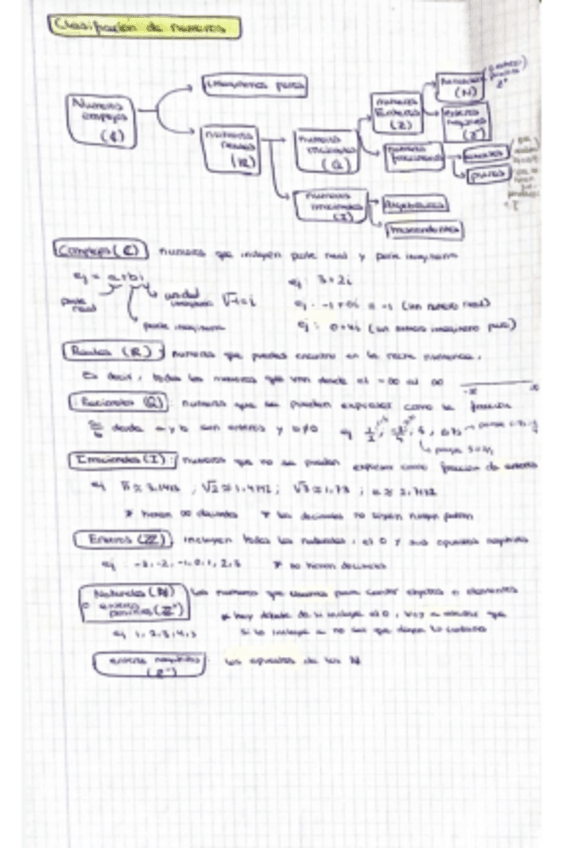 Clasificación de números
Imaginarios puros
Números complejos (ℂ)
números reales (ℝ)
números racionales (Q)
números Enteros (Z)
Naturales (N)
enteros negativos (Z⁻)
números fraccionarios
exactos
puros
números irracionales (I)
Algebraicos
trascendentes
Complejos (ℂ) números que incluyen parte real y parte imaginaria
ej = a+bi
ej: 3+2i
parte real
unidad imaginaria √-1=i
ej: -1+0i = -1 (un número real)
parte imaginaria
ej: 0+4i (un número imaginario puro)
Reales (ℝ): números que puedes encontrar en la recta numérica,
Es decir, todos los números que van desde el -∞ al ∞
-∞ ∞
Racionales (Q): números que se pueden expresar como la fracción
a/b donde a y b son enteros y b≠0 ej
Irracionales (I): números que no se pueden expresar como fracción de enteros
ej π≈3.1415 ; √2≈1.4142 ; √3≈1.73 ;
* tienen ∞ decimales * los decimales no siguen ningún patrón
Enteros (ℤ) incluyen todos los naturales, el 0 y sus opuestos negativos
ej: -3,-2,-1,0,1,2,3 * no tienen decimales
Naturales (N) o enteros positivos (Z⁺) Los números que usamos para contar objetos o elementos
* hay debate de si incluye el 0, que
ej 1,2,3,4,5 si lo incluye o no
enteros negativos (Z⁻): los opuestos de los N